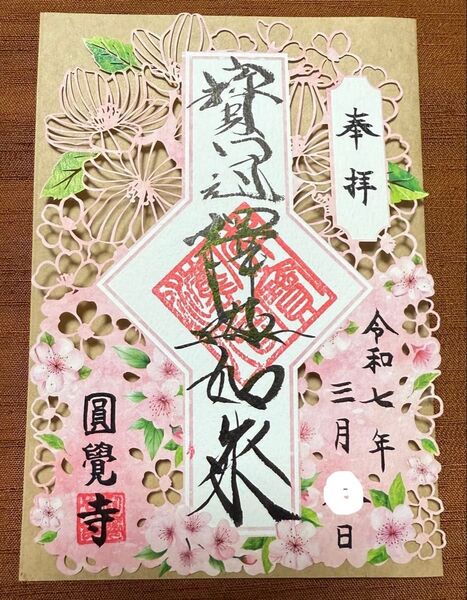 奉拝
令和七年
三月 日
寶冠釋迦如来
圓覺寺